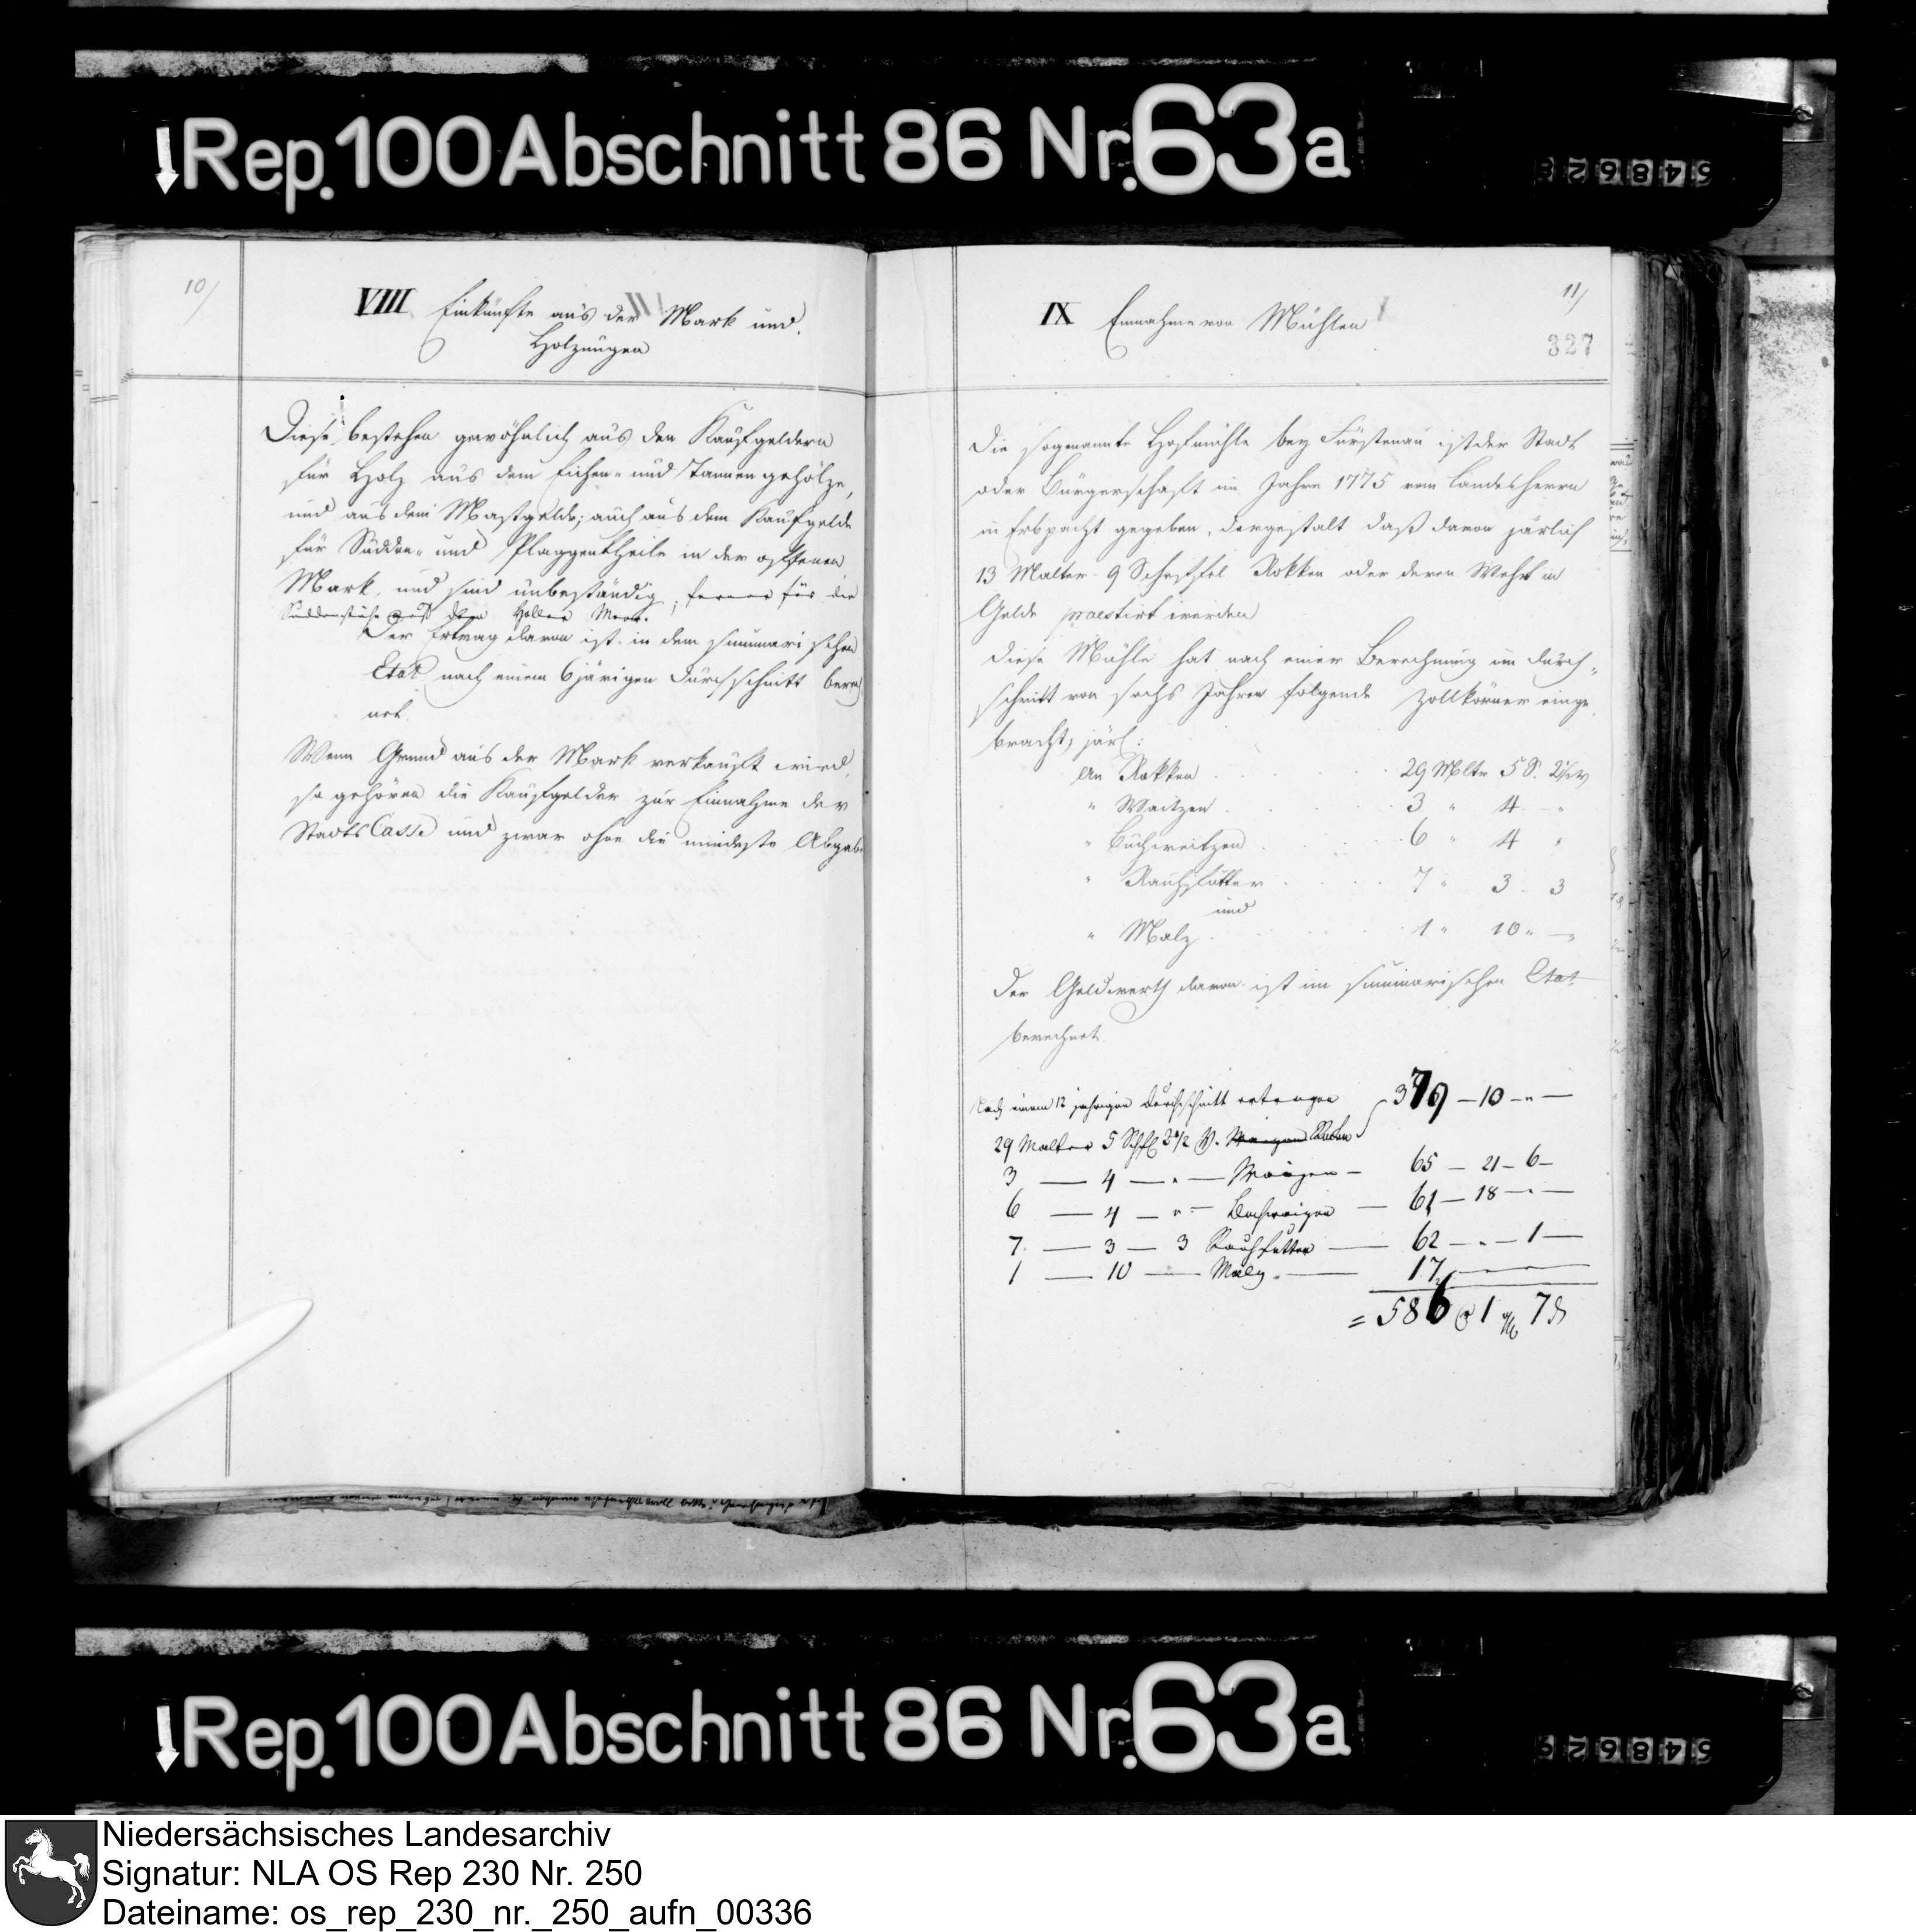 Rep. 100 Abschnitt 86 Nr. 63a
548628
10/
VIII Einkünfte aus der Mark und
Holzungen
Diese bestehen gewöhnlich aus den Kaufgeldern
für Holz aus dem Eichen- und Tannengehölze,
und aus dem Mastgelde; auch aus dem Kaufgelde
für Sudden- und Plaggentheile in der offenen
Mark, und sind unbeständig; ferner für die
aus dem Mark.
Der Ertrag davon ist in dem summarischen
Etat nach einem 6järigen Durchschnitt berech
net.
Wenn Grund aus der Mark verkauft wird,
so gehören die Kaufgelder zur Einnahme der
StadtsCasse und zwar ohne die mindeste Abgabe
11/
327
IX Einnahme von Mühlen
Die sogenannte Hofmühle bey Fürstenau ist der Stadt
oder Bürgerschaft im Jahre 1775 vom Landesherrn
in Erbpacht gegeben, dergestalt daß davon järlich
13 Malter 9 Scheffel Rokken oder deren Wehrt in
Gelde praestirt werden
Diese Mühle hat nach einer Berechnung im Durch-
schnitt von sechs Jahren folgende Zollkörner einge
bracht, järl:
An Rokken . . . 29 Mltr 5 S. 2½ V
" Waitzen . . . 3 " 4 - "
" Buchweitzen . . . 6 " 4 "
" Rauhfutter . . . 7 " 3 - 3
und
" Malz . . . 1 " 10 " — "
Der Geldwerth davon ist im summarischen Etat
berechnet.
Nach einem 12 jährigen Durchschnitt ertragen
379 — 10 — " —
29 Malter 5 Schfl 2½ V. Roken
3 — 4 — " — Waizen — 65 — 21 — 6 —
6 — 4 — " — Buchweizen — 61 — 18 — " —
7 — 3 — 3 Rauhfutter — 62 — " — 1 —
1 — 10 — Malz — 17 —
= 586 1 7
Rep. 100 Abschnitt 86 Nr. 63a
548629
Niedersächsisches Landesarchiv
Signatur: NLA OS Rep 230 Nr. 250
Dateiname: os_rep_230_nr._250_aufn_00336